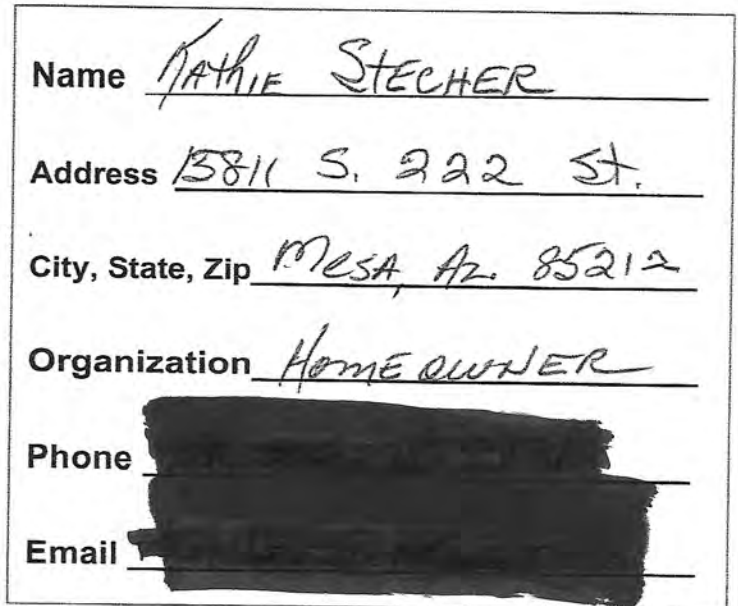 Name Kathie Stecher
Address 15811 S. 222 St.
City, State, Zip Mesa, Az. 85212
Organization Homeowner
Phone
Email